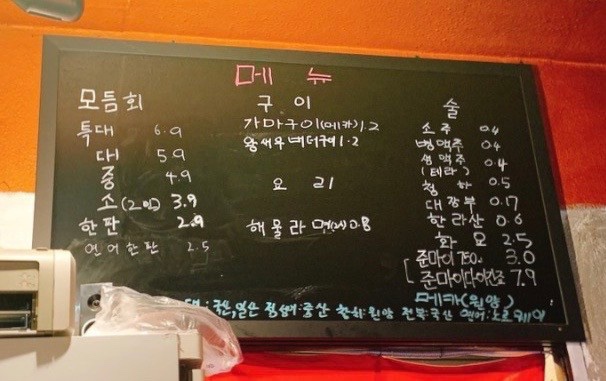 메 뉴
모듬회
특대 6.9
대 5.9
중 4.9
소(2인) 3.9
한판 2.9
연어한판 2.5
구 이
가마구이(메카)1.2
왕새우버터구이 1.2
요 리
해물라면(2인)0.8
술
소주 0.4
병맥주 0.4
생맥주 0.4
(테라)
청하 0.5
대장부 0.17
한라산 0.6
화요 2.5
준마이750 3.0
준마이다이긴조 7.9
메카(원양)
국산,일본 점성어:중산 참치:원양 전복:국산 연어:노르웨이